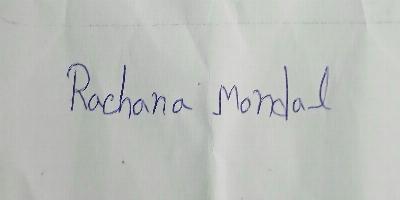 Rachana Mondal